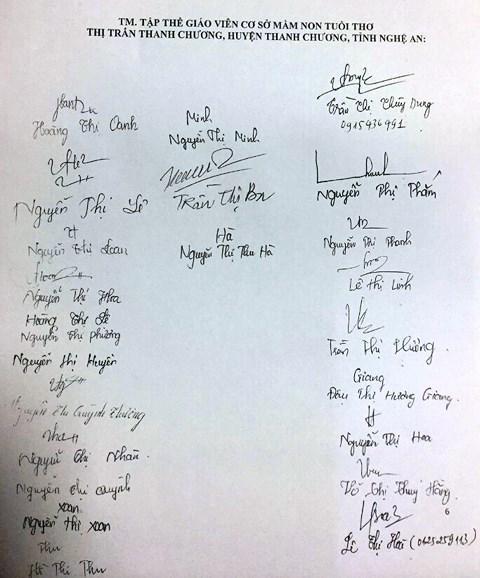 TM. TẬP THỂ GIÁO VIÊN CƠ SỞ MẦM NON TUỔI THƠ
THỊ TRẤN THANH CHƯƠNG, HUYỆN THANH CHƯƠNG, TỈNH NGHỆ AN:
Hoàng Thị Oanh
Nguyễn Thị Lê
Nguyễn Thị Loan
Nguyễn Thị Hoa
Hoàng Thị Lê
Nguyễn Thị Phương
Nguyễn Thị Huyền
Nguyễn Thị Quỳnh Thương
Nguyễn Thị Nhàn
Nguyễn Thị Quỳnh
xoan
Nguyễn Thị Xoan
Thu
Hồ Thị Thu
Minh
Nguyễn Thị Minh
Trần Thị
Hà
Nguyễn Thị Thu Hà
Trần Thị Thùy Dung
0915436991
Nguyễn Thị Thắm
Nguyễn Thị Thanh
Lê Thị Linh
Trần Thị
Giang
Đậu Thị Hương Giang
Nguyễn Thị Hoa
Võ Thị Thuý Hằng
6
Lê Thị Hải